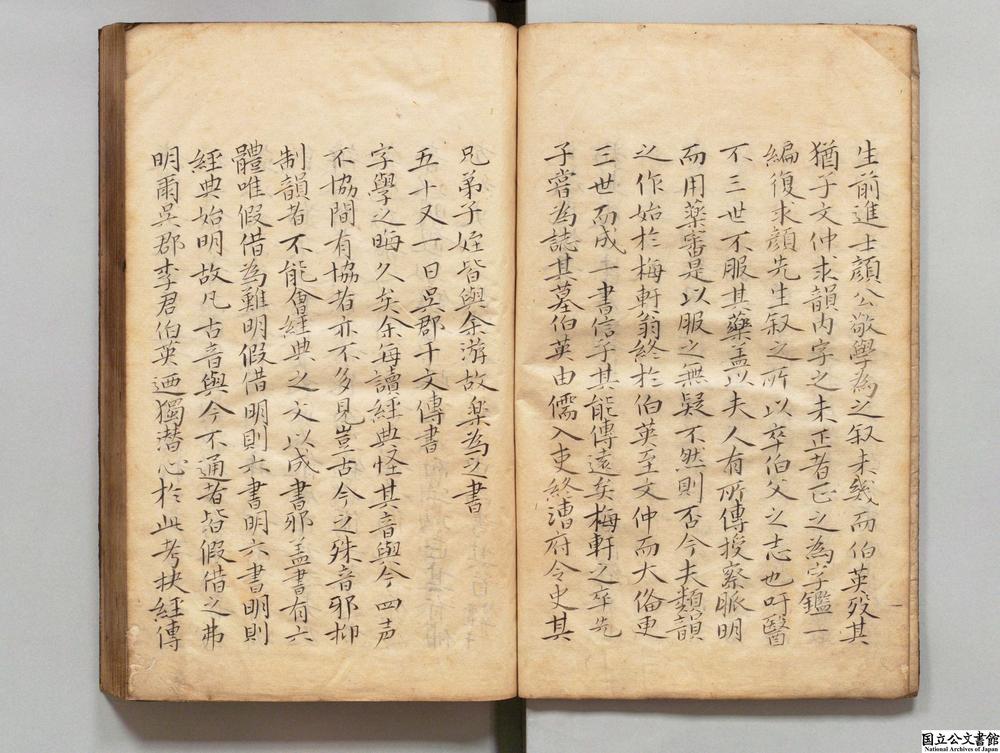 生前進士顔公敬學為之叙未幾而伯英歿其
猶子文仲求韻内字之未正者正之為字鑑一
編復求顔先生叙之所以卒伯父之志也吁醫
不三世不服其藥盖以夫人有所傳授察脈明
而用藥審是以服之無疑不然則否今夫類韻
之作始於梅軒翁終於伯英至文仲而大俻更
三世而成一書信乎其能傳遠矣梅軒之卒先
子嘗為誌其墓伯英由儒入吏終漕府令史其
兄弟子姪皆與余游故楽為之書
五十又一日吳郡干文傳書
字學之晦久矣余每讀經典怪其音與今四声
不協間有協者亦不多見豈古今之殊音邪抑
制韻者不能會經典之文以成書邪盖書有六
體唯假借為難明假借明則六書明六書明則
經典始明故凡古音與今不通者皆假借之弗
明爾吳郡李君伯英迺獨潜心於此考抉經傳
国立公文書館
National Archives of Japan